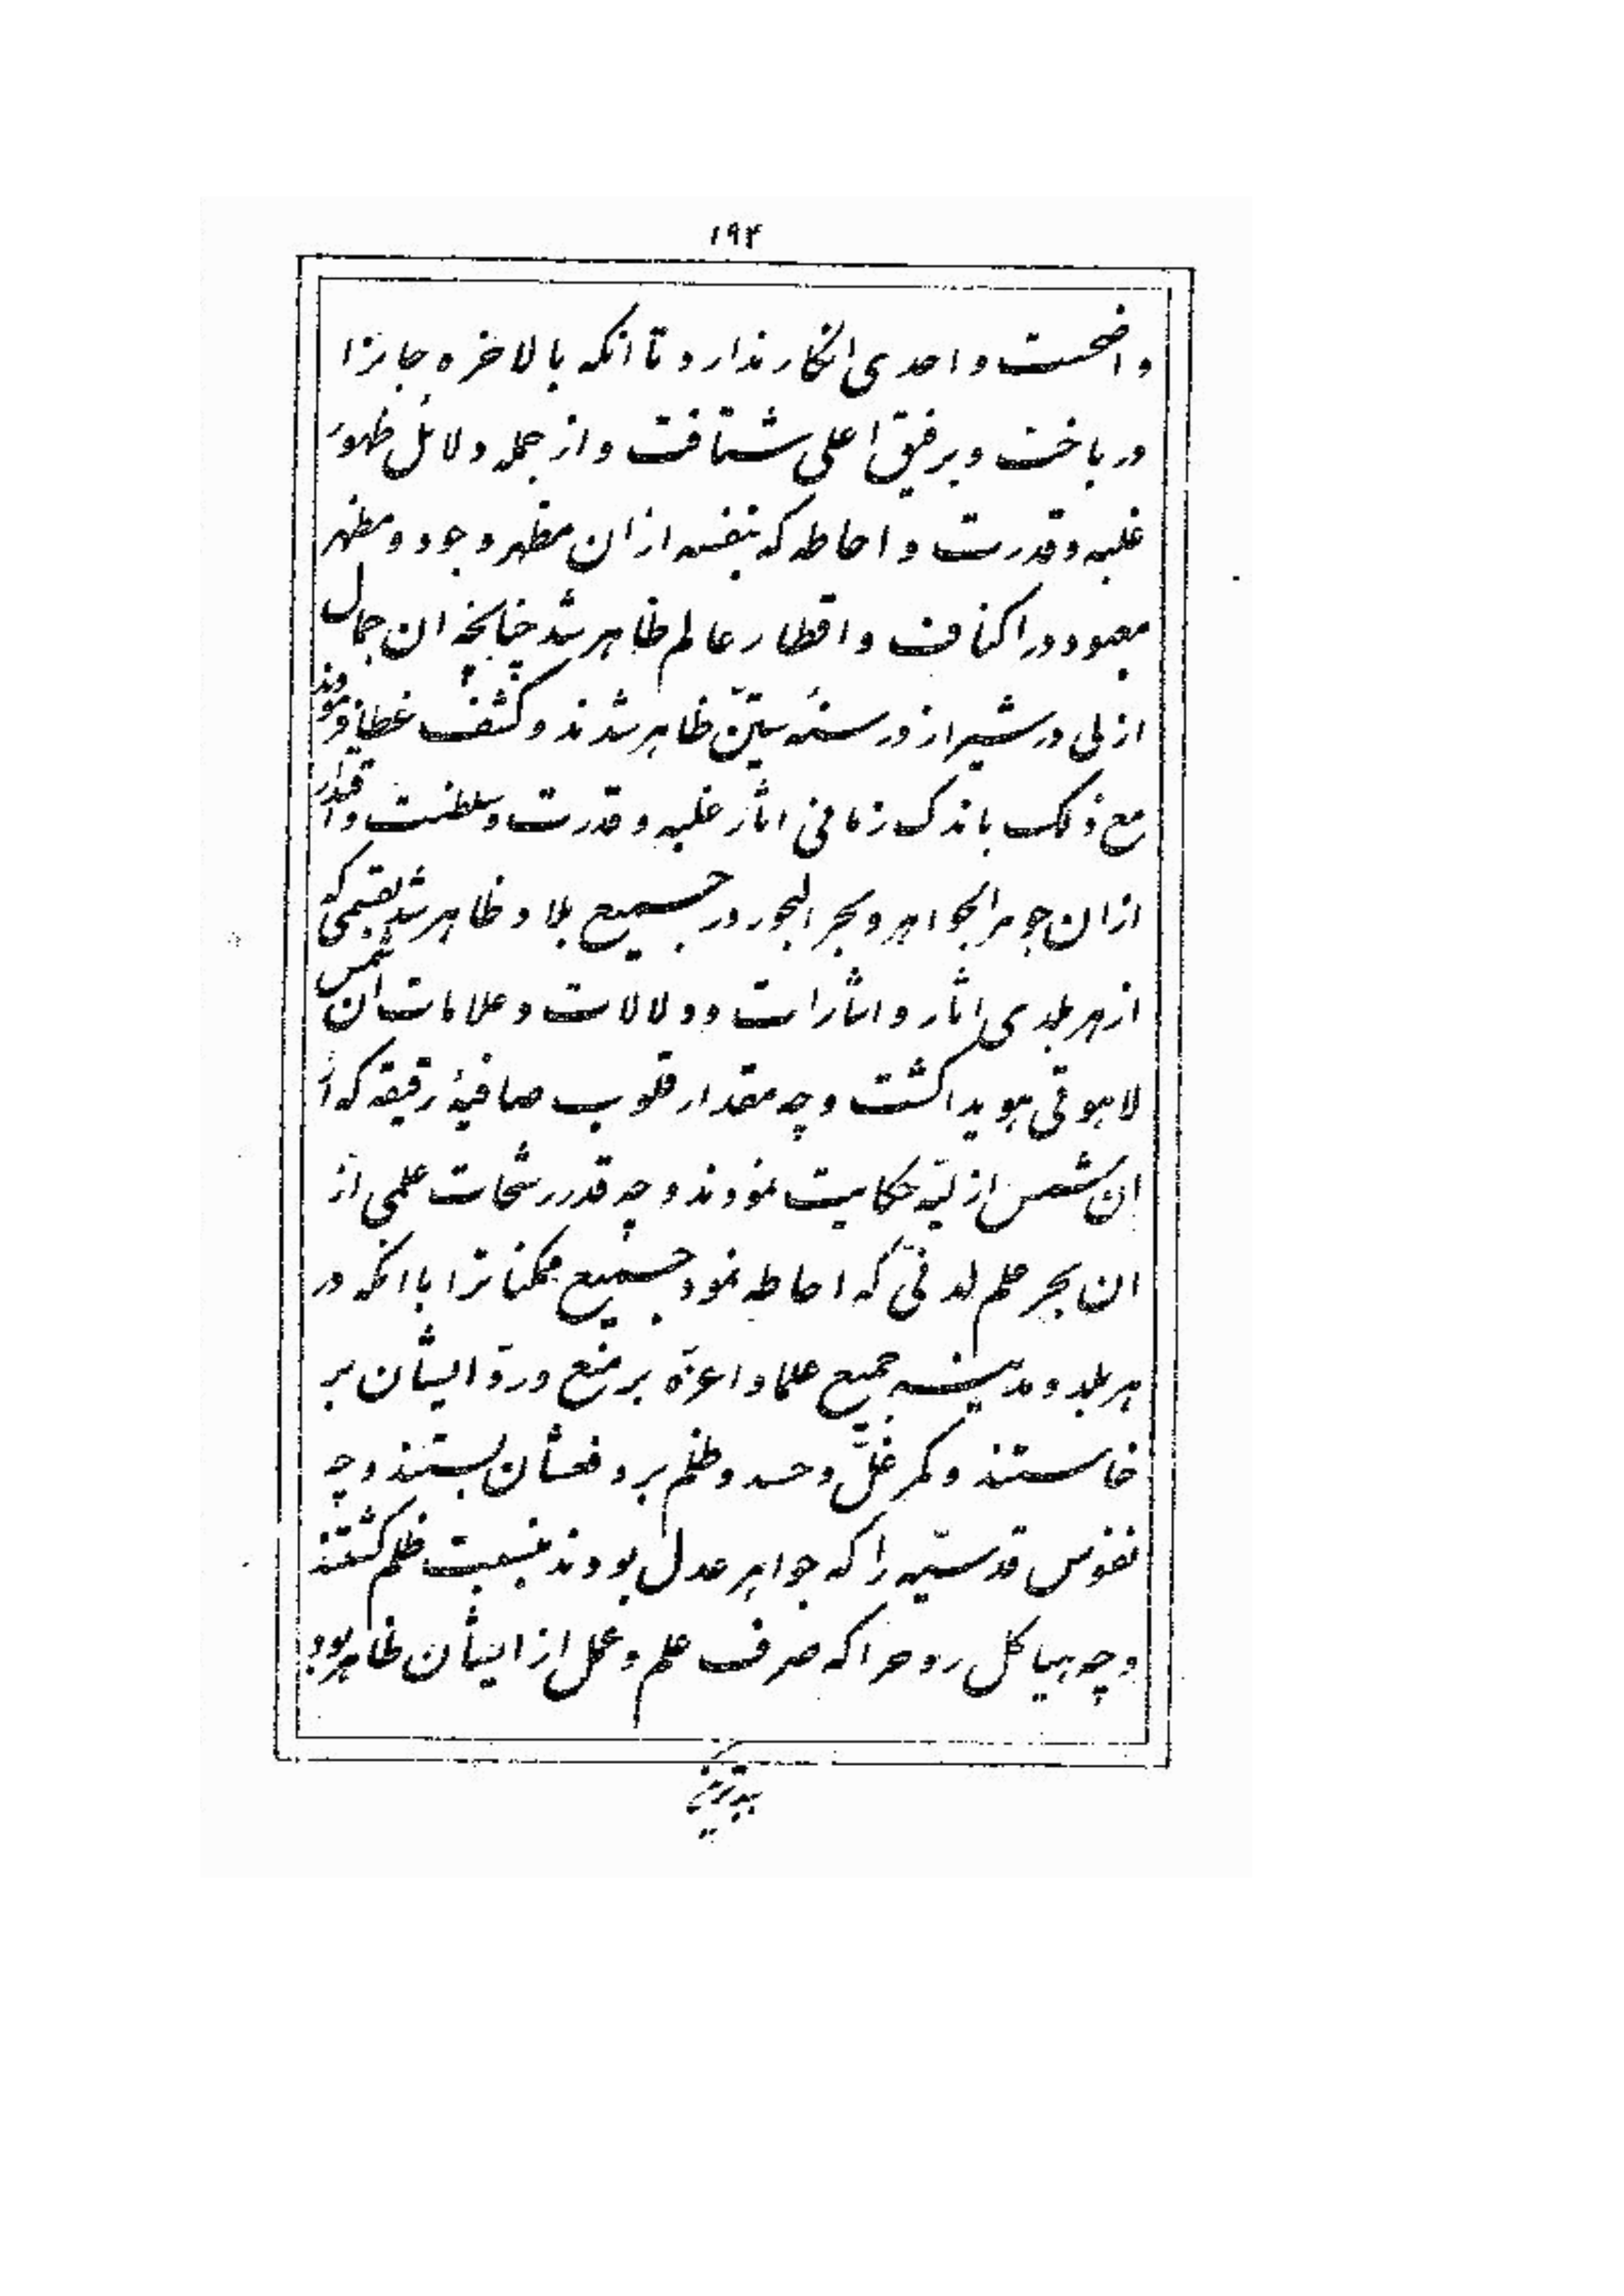 ۱۹۴
واضحست و احدی انکار ندارد تا انکه بالاخره جانرا
در باخت و برفیق اعلی شتافت و از جمله دلائل ظهور
غلبه و قدرت و احاطه که بنفسه از ان مظهر وجود و مظهر
معبود در اکناف و اقطار عالم ظاهر شد چنانچه ان جمال
ازلی در شیراز در سنهٔ ستّین ظاهر شدند و کشف غطا فرمودند
مع ذلک باندک زمانی اثار غلبه و قدرت و سلطنت و اقتدار
از ان جوهر الجواهر و بحر البحور در جمیع بلاد ظاهر شد بقسمی که
از هر بلدی اثار و اشارات و دلالات و علامات ان شمس
لاهوتی هویدا کشت و چه مقدار قلوب صافیهٔ رقیقه که از
ان شمس ازلیّه حکایت نمودند و چه قدر رشحات علمی از
ان بحر علم لدنّی که احاطه نمود جمیع ممکناترا با انکه در
هر بلد و مدینه جمیع علما و اعزّه بر منع و ردّ ایشان بر
خاستند و کمر غلّ و حسد و ظلم بر دفعشان بستند و چه
نفوس قدسیّه را که جواهر عدل بودند بنسبت ظلم کشتند
و چه هیاکل روحرا که صرف علم و عمل از ایشان ظاهر بود
ببدترین